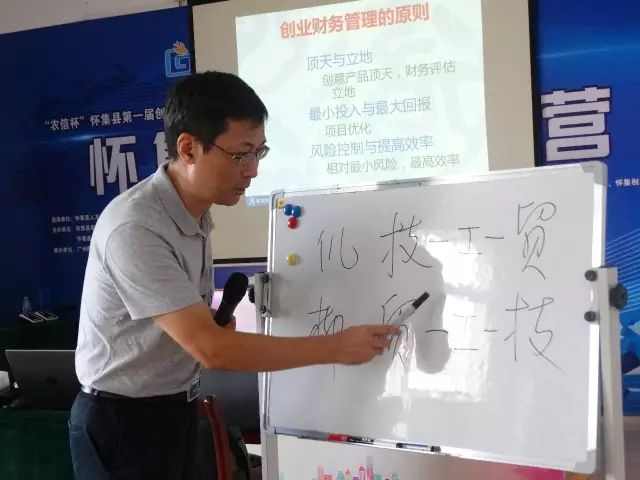 创业财务管理的原则
顶天与立地
创意产品顶天，财务评估
立地
最小投入与最大回报
项目优化
风险控制与提高效率
相对最小风险，最高效率
“农信杯”怀集县第一届创
怀集
营
技-工-貿
贸-工-技